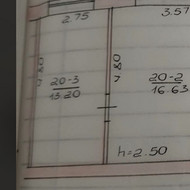 2.75
3.57
4.80
4.80
20-3
13.20
20-2
16.63
h=2.50